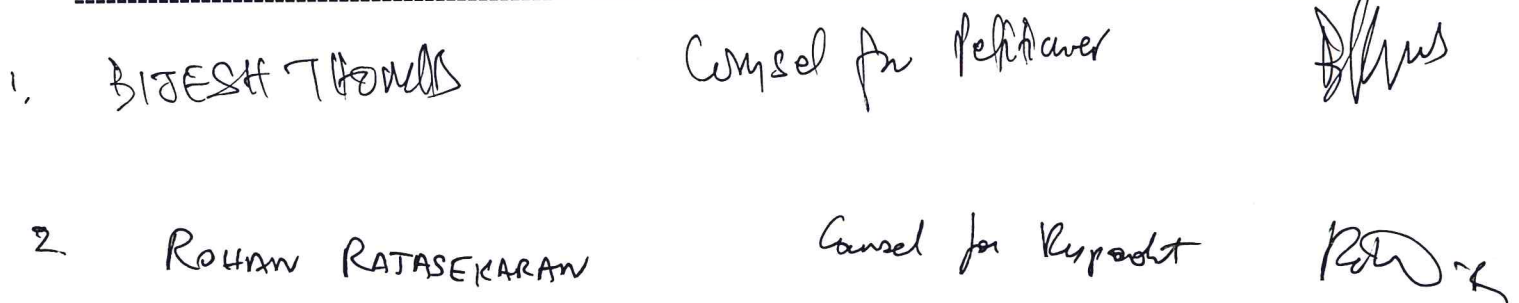 1. BIJESH THOMAS Counsel for Petitioner
2. ROHAN RAJASEKARAN Counsel for Respondent